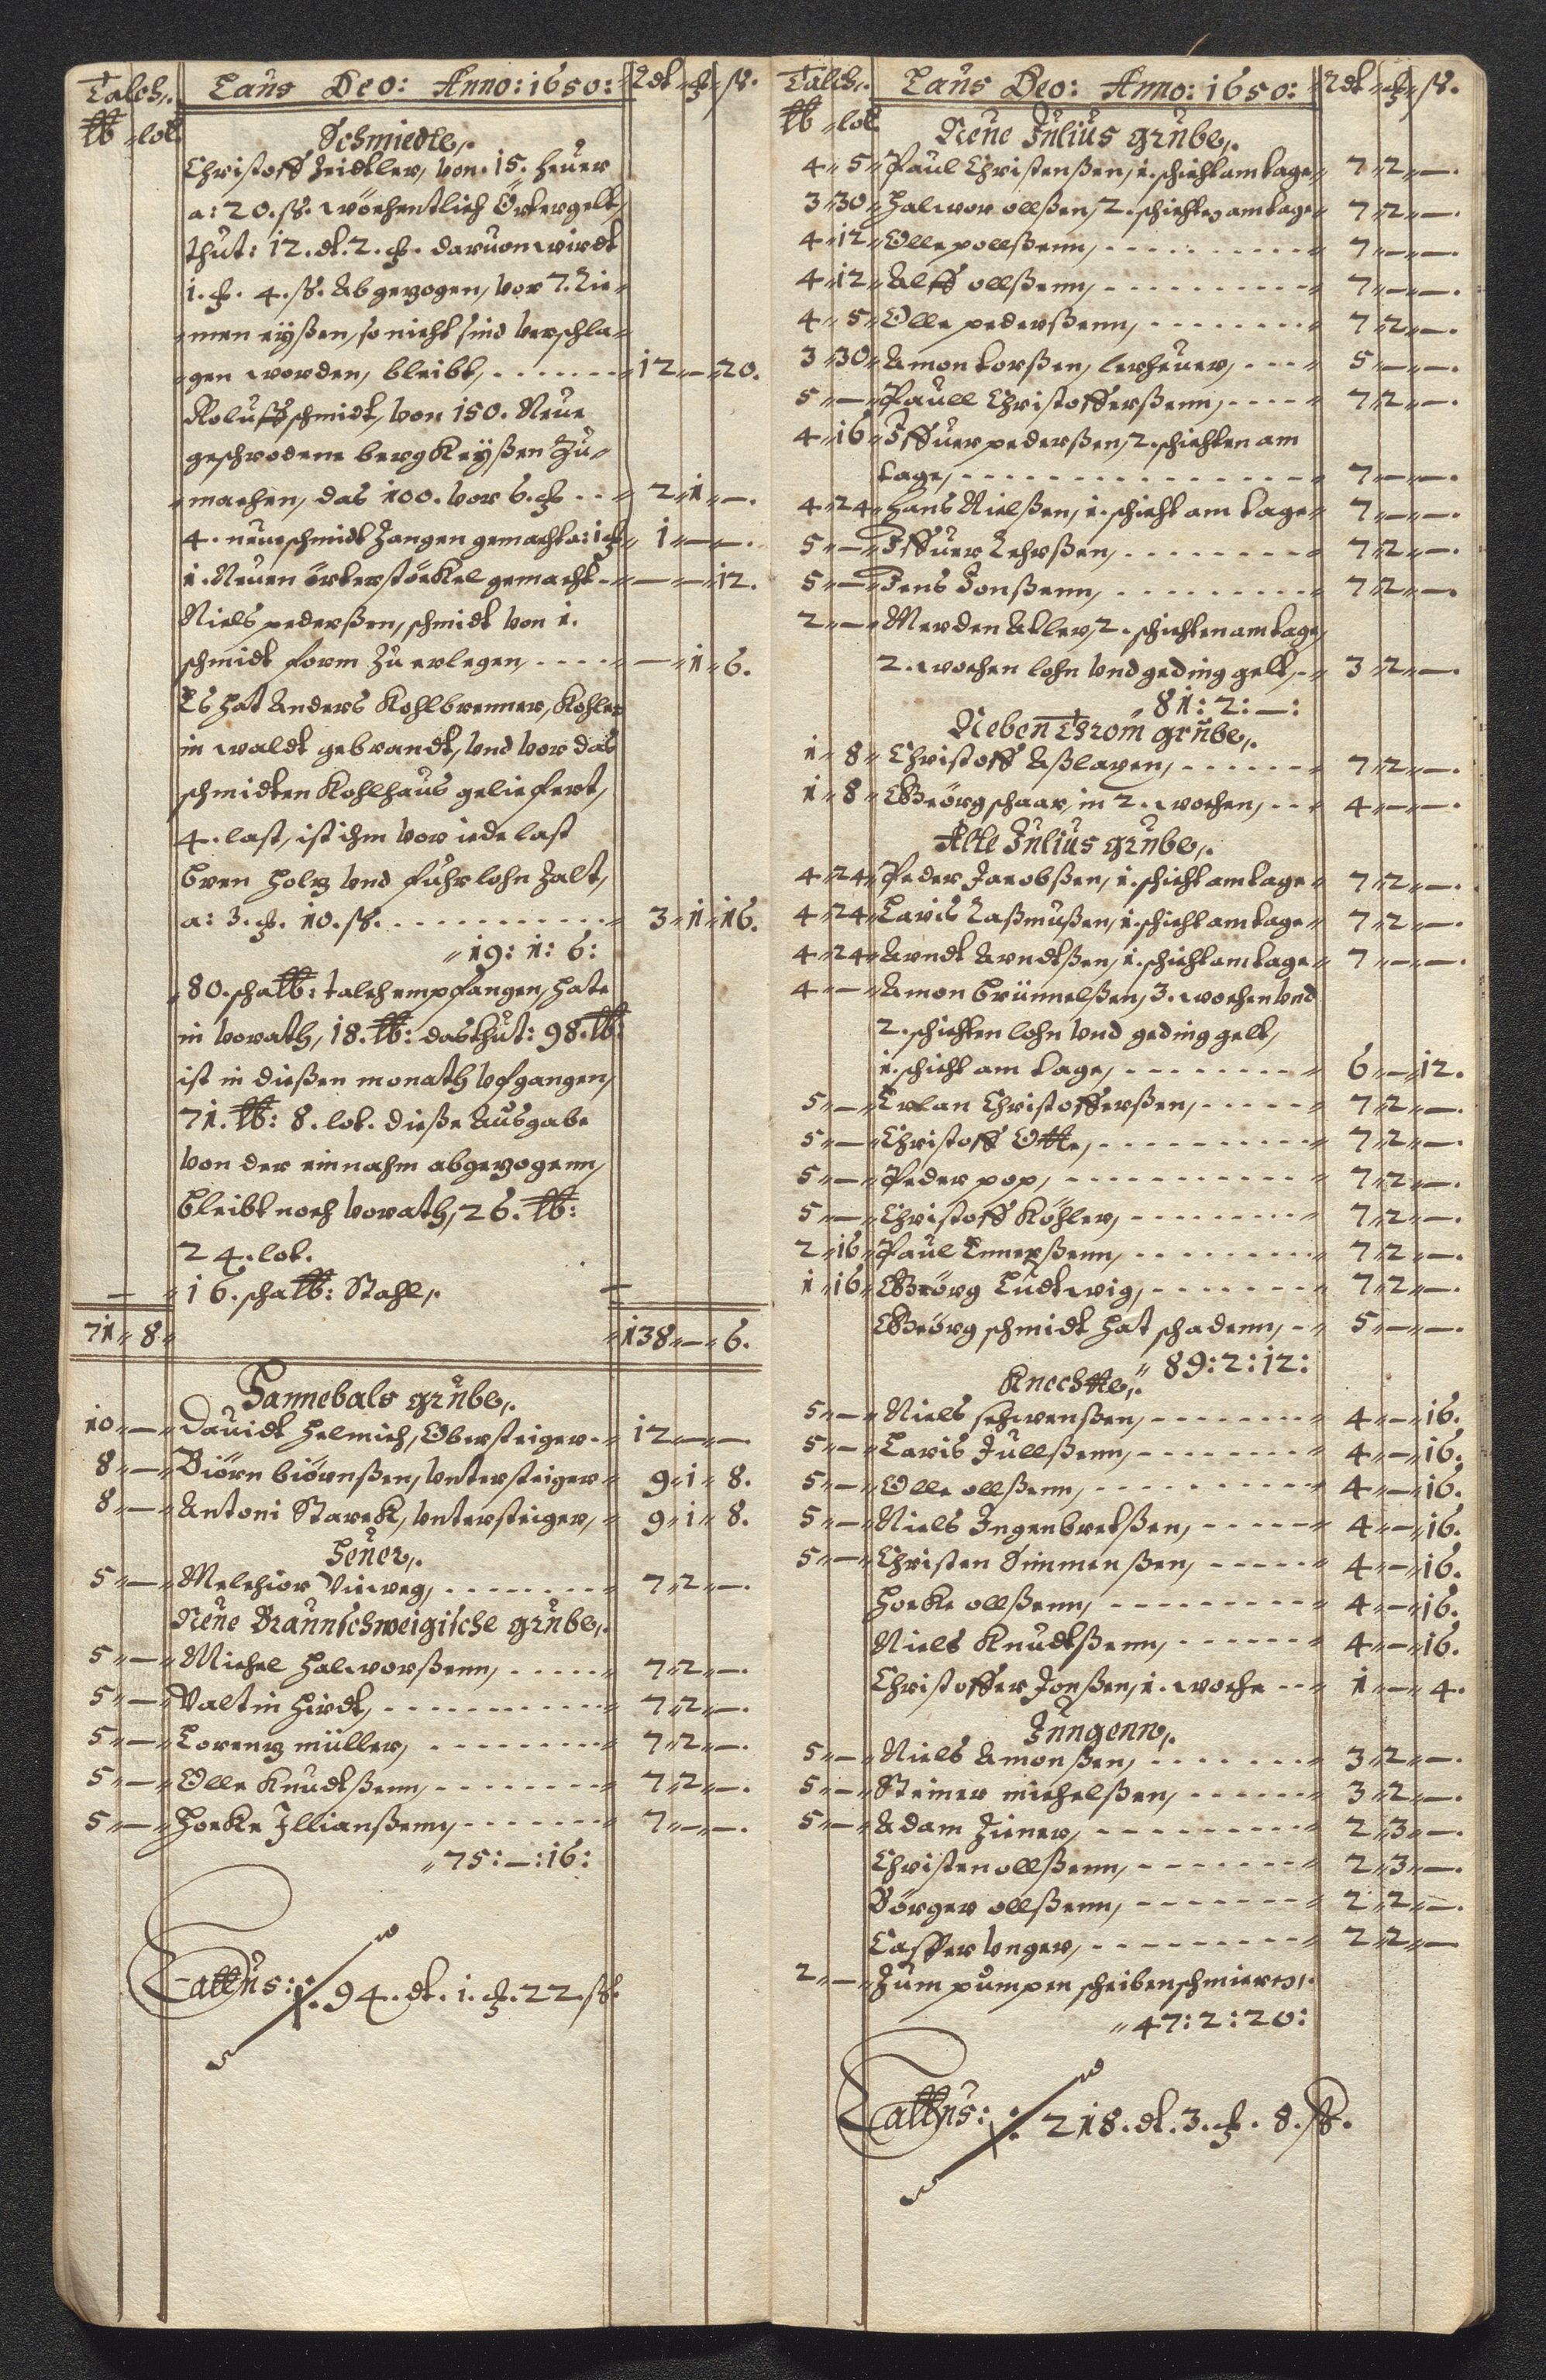 Talch,. Laus Deo: Anno: 1650: Rdt ҩ ß.
lb lot
Schmiedte,.
Christoff Zeidtler, von. 15. heuer
a: 20. ß. wöchentlich Örtergelt,
thut: 12. dt. 2. ҩ. daruon wirdt
1. ҩ. 4. ß. Abgezogen, vor 7. Rie-
men eyßen, so nicht sind verschla-
gen worden, bleibt, 12 — 20.
Roluff schmidt, von 150. Neue
geschrodene bergKeyßen Zu-
machen, das 100. vor 6. ҩ 2 1 —.
4. neue schmidt Zangen gemacht a: 1 ҩ 1 — —.
1. Neuen örterstöckel gemacht — — 12.
Niels pederßen, schmidt von 1.
schmidt form Zu erlegen, — 1 6.
Es hat Anders Kohlbrenner, Kohlen
in waldt gebrandt, vnd vor das
schmidten Kohlhaus geliefert,
4. last, ist ihm vor iede last
bren holz vnd fuhrlohn Zalt,
a: 3. ҩ. 10. ß. 3 1 16.
19: 1: 6:
80. scha lb: talch empfangen, hate
in vorath, 18. lb: das thut: 98. lb:
ist in dießen monath vfgangen,
71. lb: 8. lot. dieße Ausgabe
von der einnahm abgezogenn,
bleibt noch vorath, 26. lb:
24. lot.
16. scha lb: Stahl,.
71 8 138 — 6.
Hannebals grube,.
10 — Dauidt Helmich, Obersteiger 12 — —
8 — Biörn biörnßen, vntersteiger 9 1 8.
8 — Antoni Starck, vntersteiger, 9 1 8.
Heuer,.
5 — Melchior Vinweg, 7 2 —.
Neue Braunschweigische grube,.
5 — Michel Halworßenn, 7 2 —.
5 — Valtin Hirdt, 7 2 —.
5 — Lorenz müller, 7 2 —.
5 — Olle Knudtßenn, 7 2 —.
5 — Hocke Illianßenn, 7 — —.
75: —: 16:
Lattus: 94. dt. 1. ҩ. 22. ß.
Talch,. Laus Deo: Anno: 1650: Rdt ҩ ß.
lb lot
Neue Julius grube,.
4 5 Paul Christenßen, 1. schicht am tage 7 2 —.
3 30 Halwor ollßen, 2. schichten am tage 7 2 —.
4 12 Olle pollßenn, 7 — —.
4 12 Alff ollßenn, 7 — —.
4 5 Olle pederßenn, 7 2 —.
3 30 Amon torßen, lerheuer, 5 — —.
5 — Paull Christofferßenn, 7 2 —.
4 16 Iffuer pederßen, 2. schichten am
tage, 7 — —.
4 24 Hans Nielßen, 1. schicht am tage 7 — —.
5 — Iffuer Lehrßen, 7 2 —.
5 — Jens Jonßenn, 7 2 —.
2 — Merden Atler, 2. schichten am tage,
2. wochen lohn vnd geding gelt, 3 2 —.
81: 2: —:
Neben Throm grube,.
1 8 Christoff Aßlagen, 7 2 —.
1 8 Geörg schaar, in 2. wochen, 4 — —.
Alte Julius grube,.
4 24 Peder Jacobßen, 1. schicht am tage 7 2 —.
4 24 Laris Raßmußen, 1. schicht am tage 7 2 —.
4 24 Arndt Arndtßen, 1. schicht am tage 7 — —.
4 — Amon Brünnelßen, 3. wochen vnd
2. schichten lohn vnd geding gelt,
1. schicht am tage, 6 — 12.
5 — Erlan Christofferßen, 7 2 —.
5 — Christoff Otte, 7 2 —.
5 — Peder pop, 7 2 —.
5 — Christoff Köhler, 7 2 —.
2 16 Paul Ennerßenn, 7 2 —.
1 16 Geörg Ludtwig, 7 2 —.
Geörg schmidt hat schadenn, 5 — —.
89: 2: 12:
Knechtte,.
5 — Niels schwenßen, 4 — 16.
5 — Laris Jullßenn, 4 — 16.
5 — Olle ollßenn, 4 — 16.
5 — Niels Ingenbretßen, 4 — 16.
5 — Christen Simmenßen, 4 — 16.
Hocke ollßenn, 4 — 16.
Niels Knudtßenn, 4 — 16.
Christoffer Jonßen, 1. woche 1 — 4.
Jungenn,.
5 — Niels Amonßen, 3 2 —.
5 — Steiner michelßen, 3 2 —.
5 — Adam Ziener, 2 3 —.
Christen ollßenn, 2 3 —.
Börger ollßenn, 2 2 —.
Casper vnger, 2 2 —
2 — Zum pumpen scheiben schmieren,.
47: 2: 20:
Lattus: 218. dt. 3. ҩ. 8. ß.